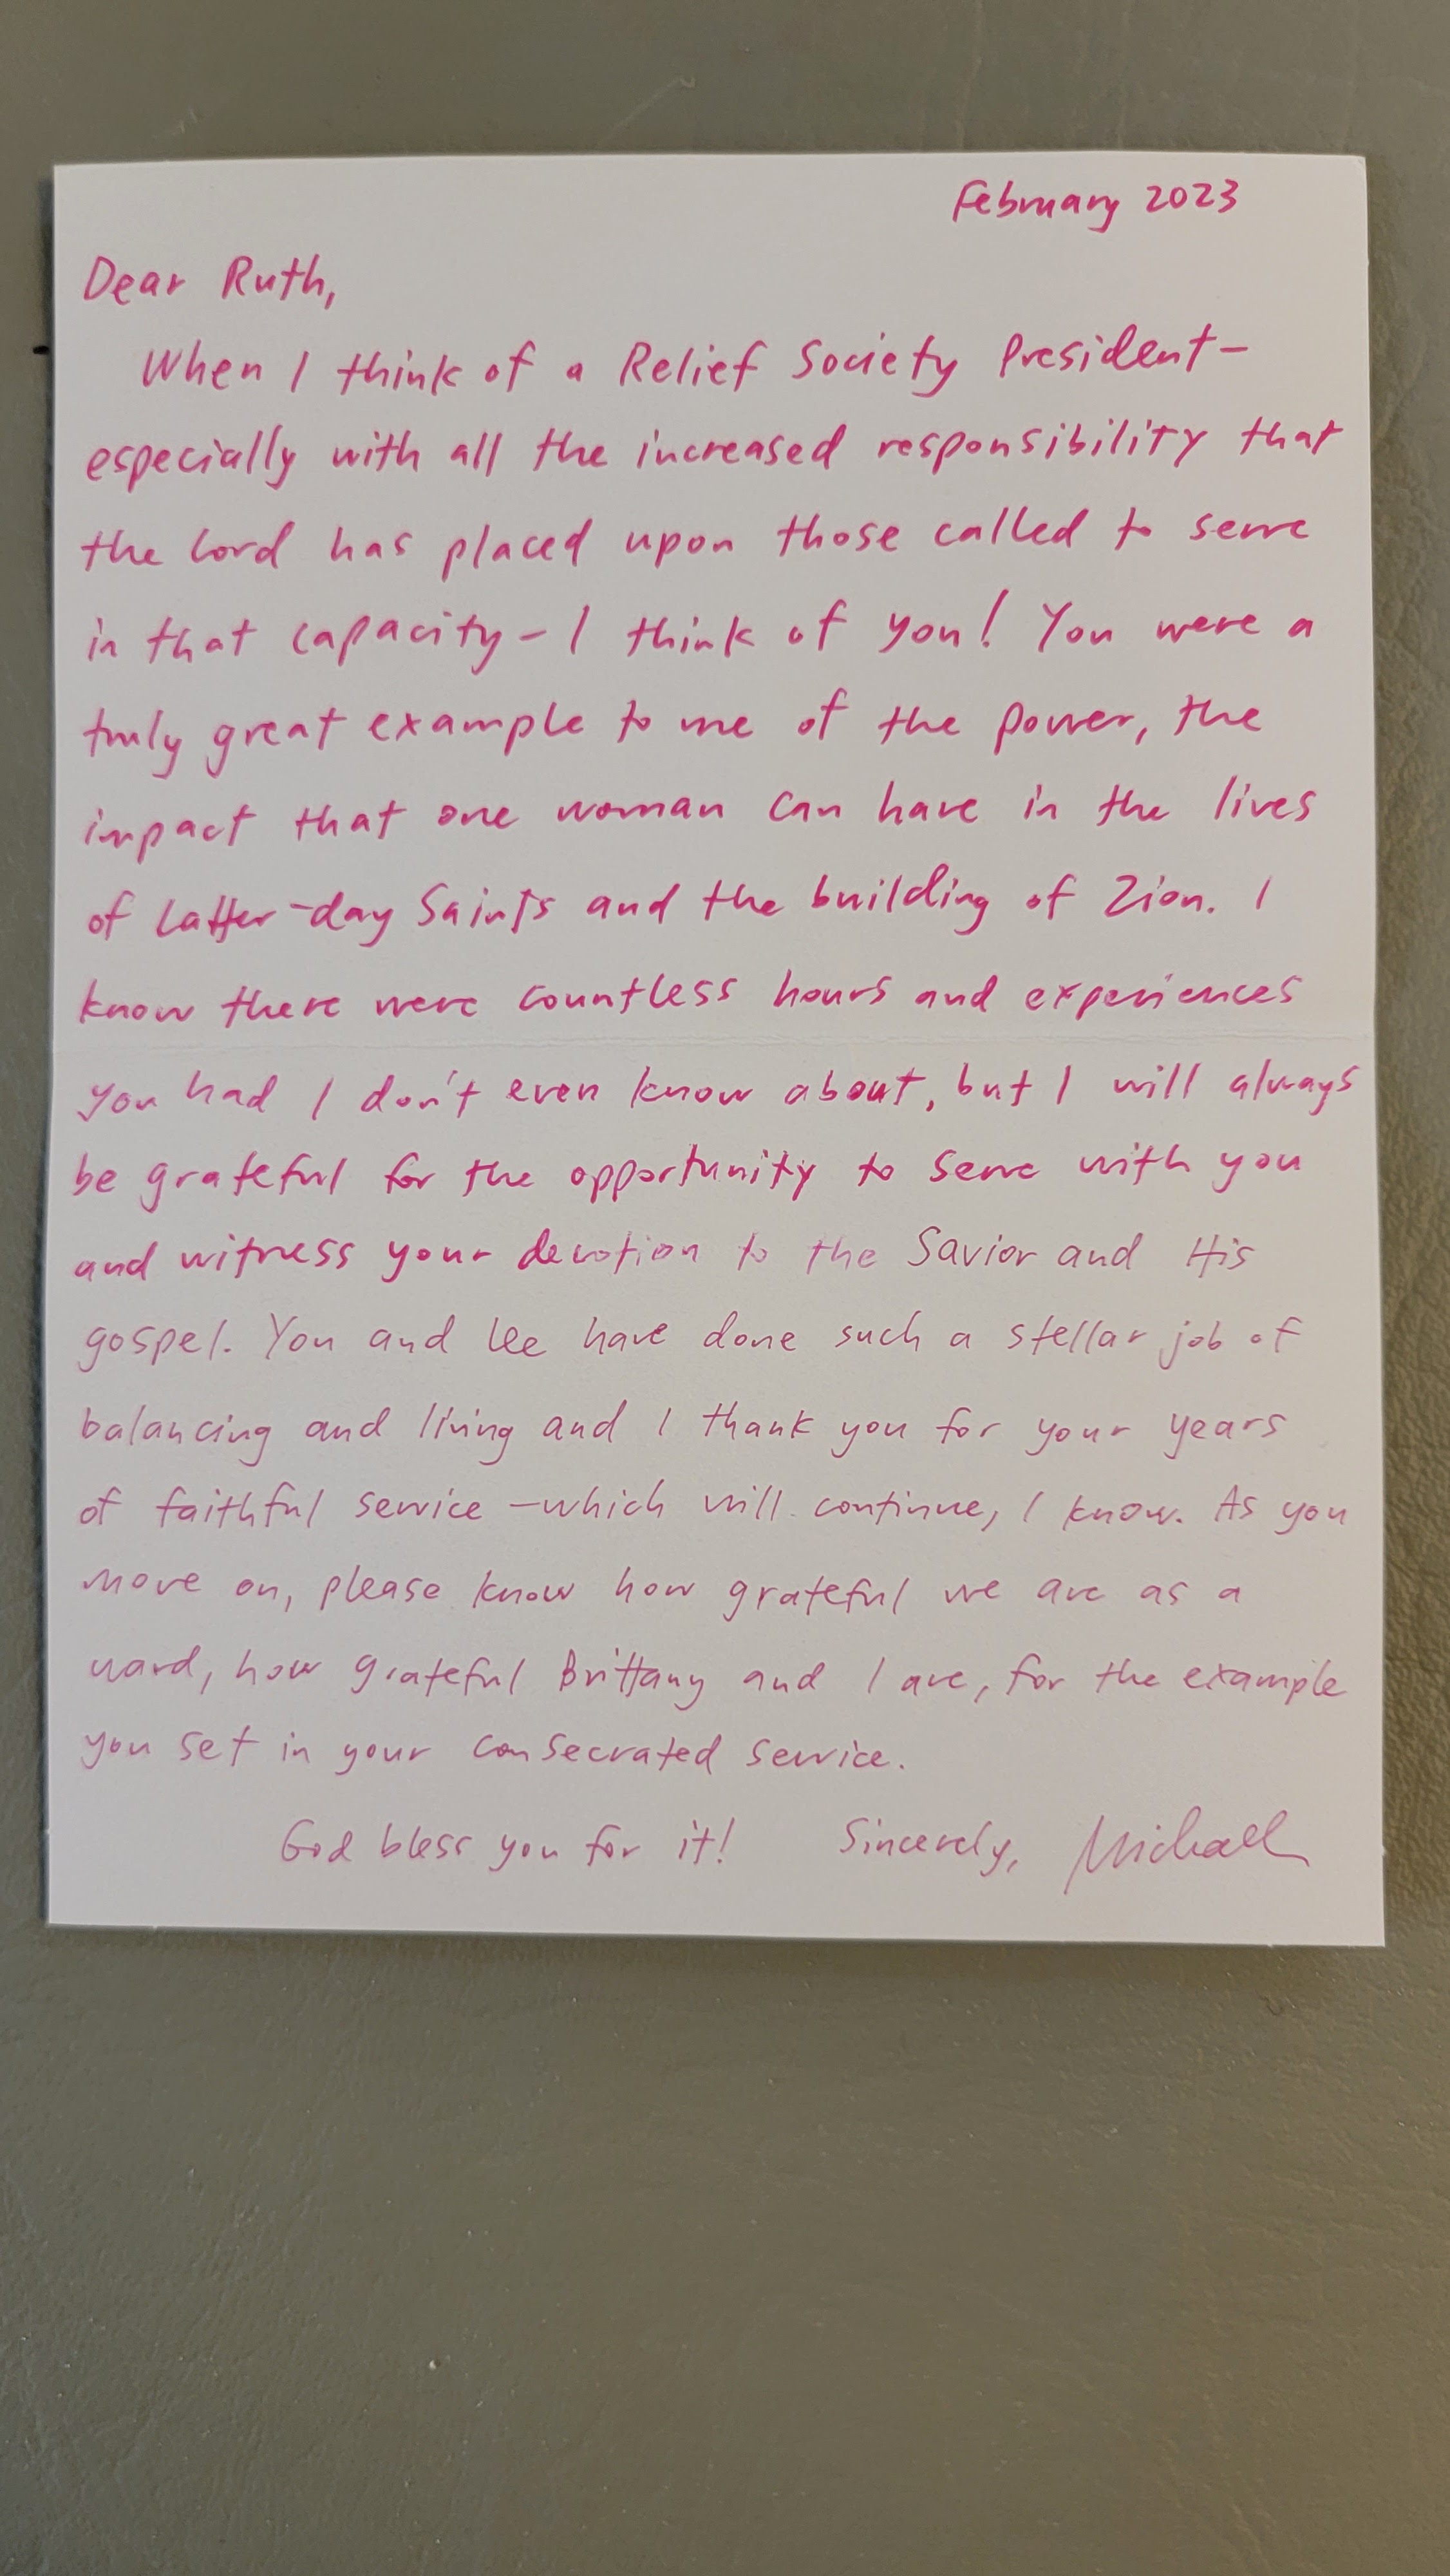 February 2023
Dear Ruth,
When I think of a Relief Society President-
especially with all the increased responsibility that
the Lord has placed upon those called to serve
in that capacity - I think of you! You were a
truly great example to me of the power, the
impact that one woman can have in the lives
of Latter-day Saints and the building of Zion. I
know there were countless hours and experiences
you had I don't even know about, but I will always
be grateful for the opportunity to serve with you
and witness your devotion to the Savior and His
gospel. You and Lee have done such a stellar job of
balancing and living and I thank you for your years
of faithful service - which will continue, I know. As you
move on, please know how grateful we are as a
ward, how grateful Brittany and I are, for the example
you set in your consecrated service.
God bless you for it! Sincerely, Michael